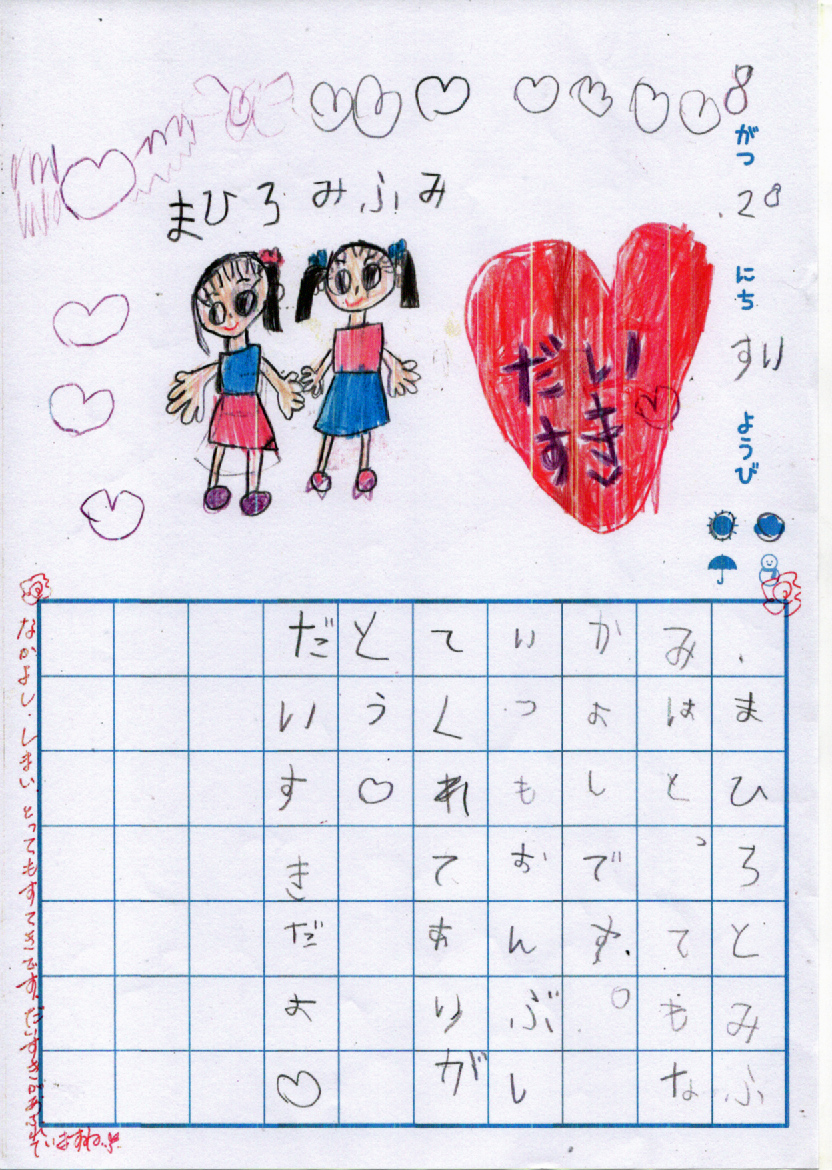 8がつ28にちすいようび
まひろ みふみ
だい
すき
まひろとみふ
みはとってもな
かよしです。
いつもおんぶし
てくれてありが
とう♡
だいすきだよ♡
なかよし しまい とってもすてきです。だいすきがあふれていますね